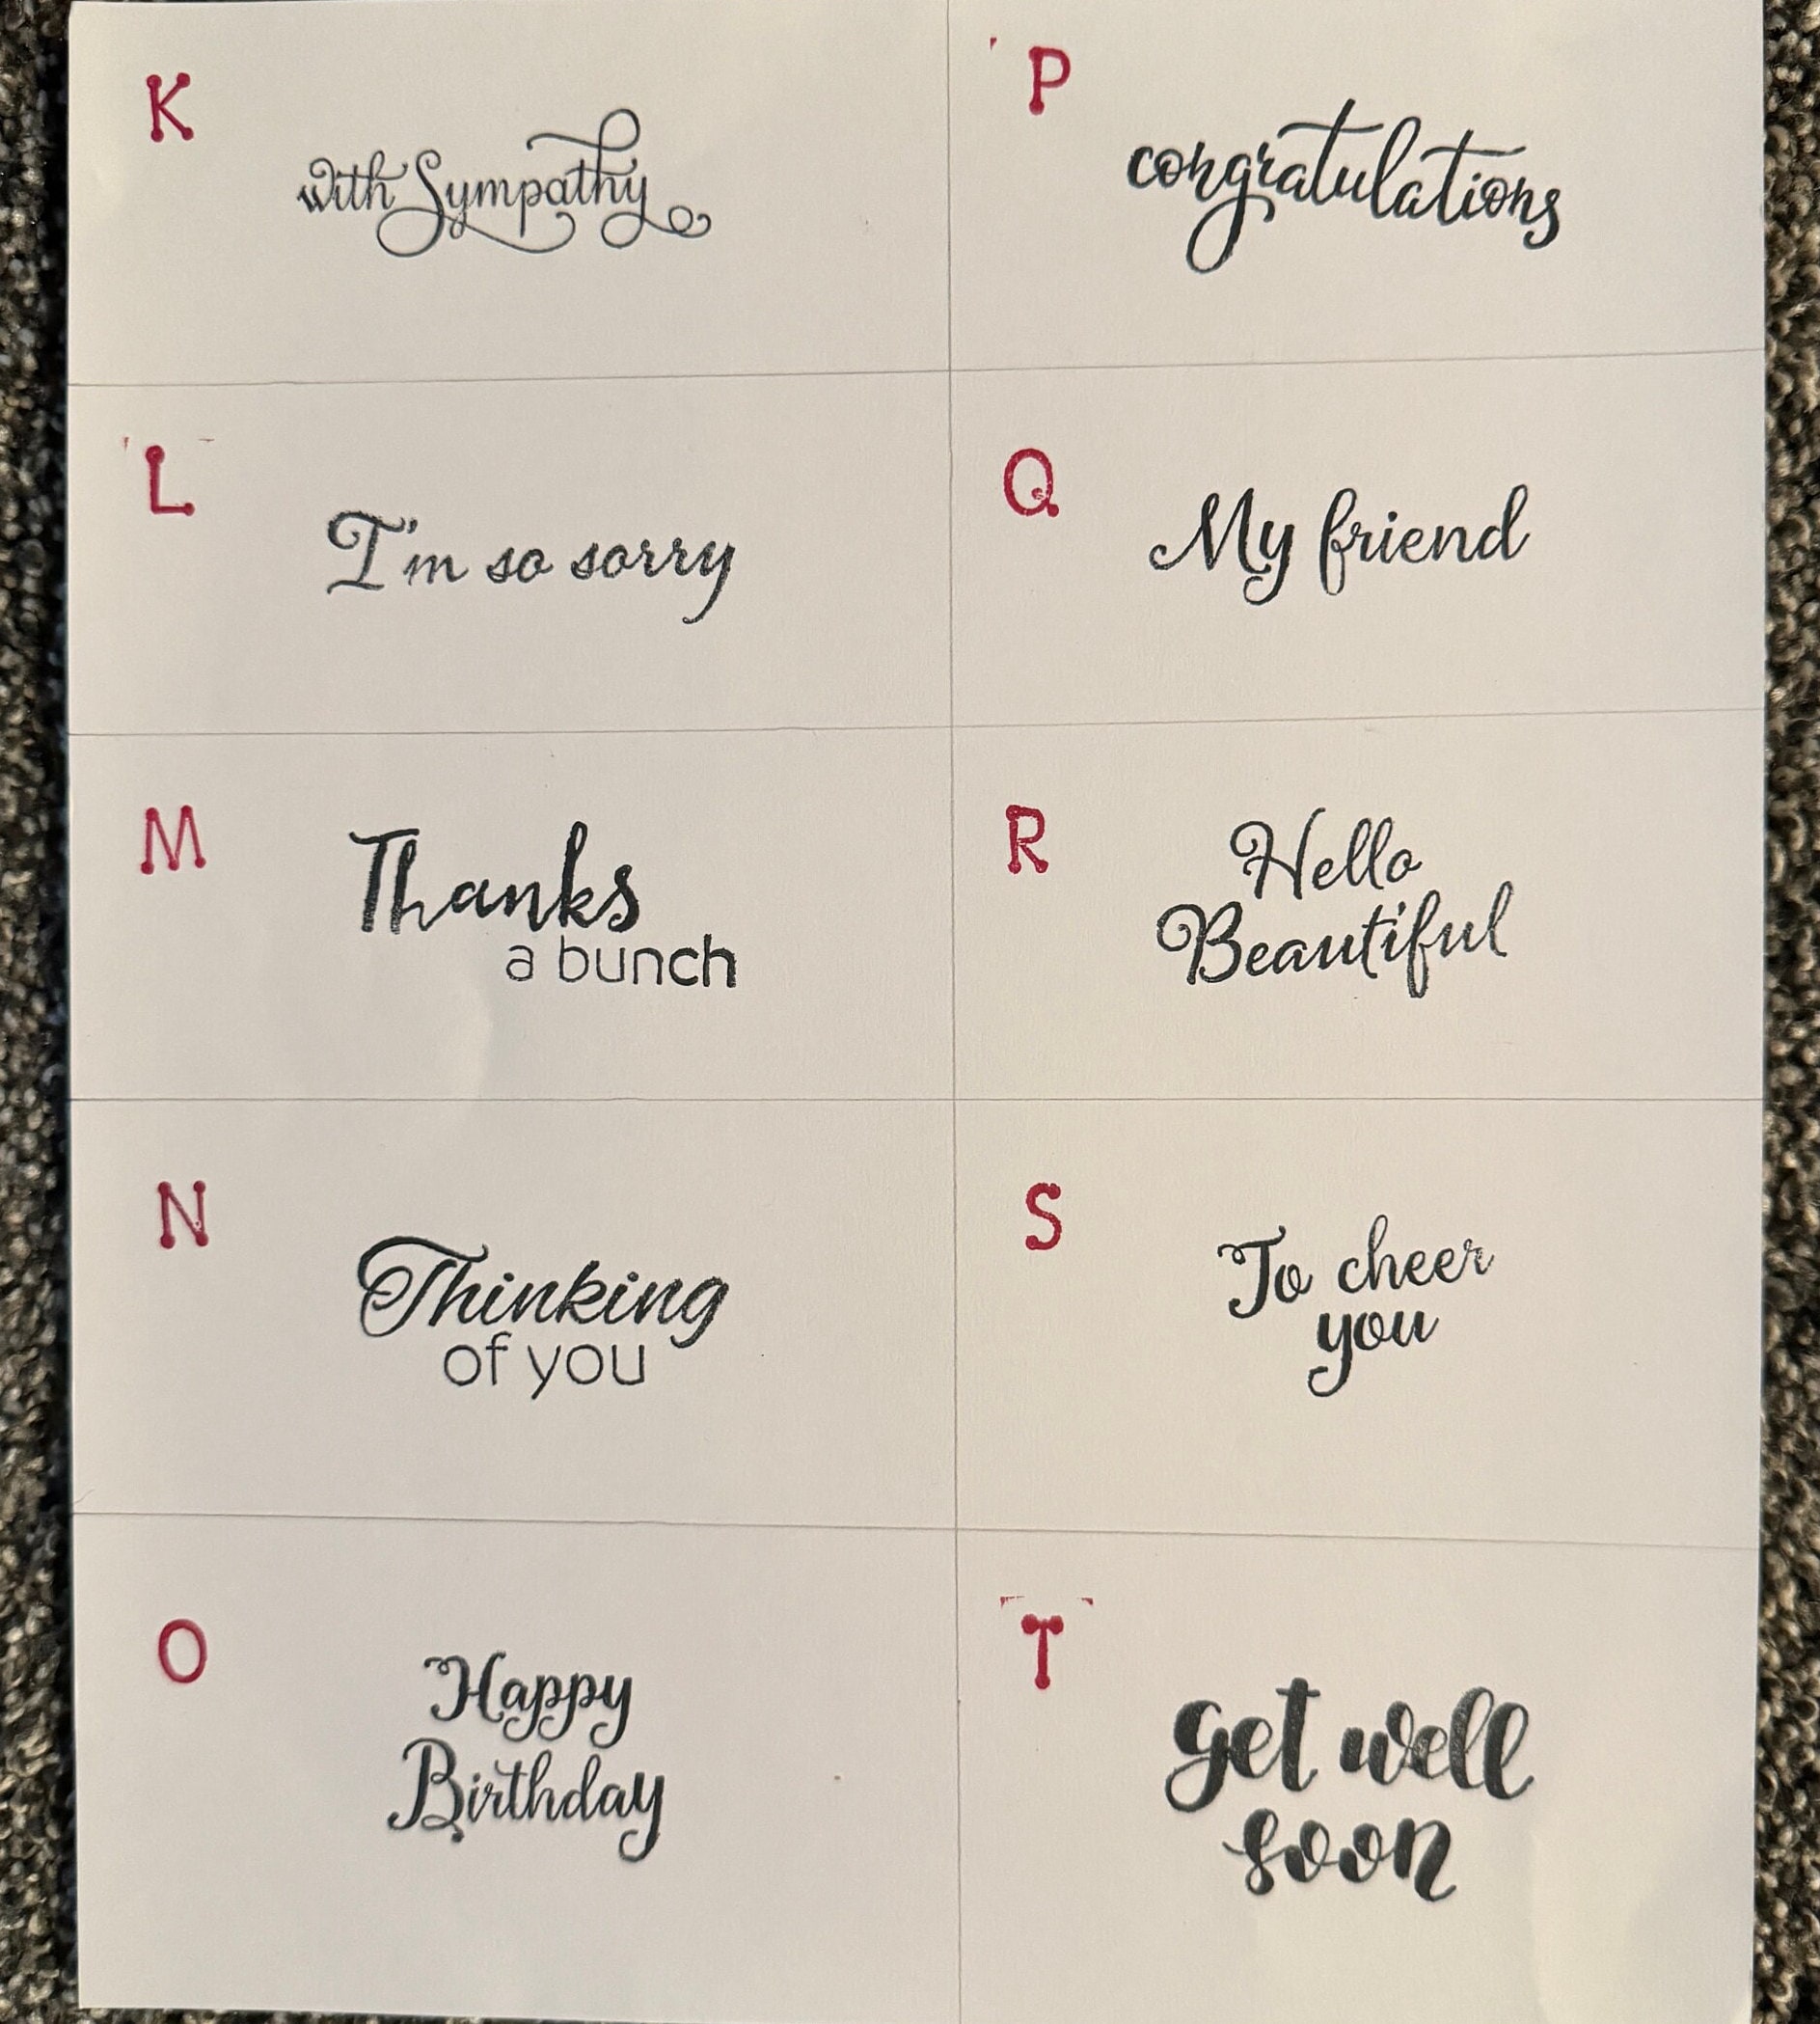 K
with Sympathy
L
I'm so sorry
M
Thanks
a bunch
N
Thinking
of you
O
Happy
Birthday
P
congratulations
Q
My friend
R
Hello
Beautiful
S
To cheer
you
T
get well
soon